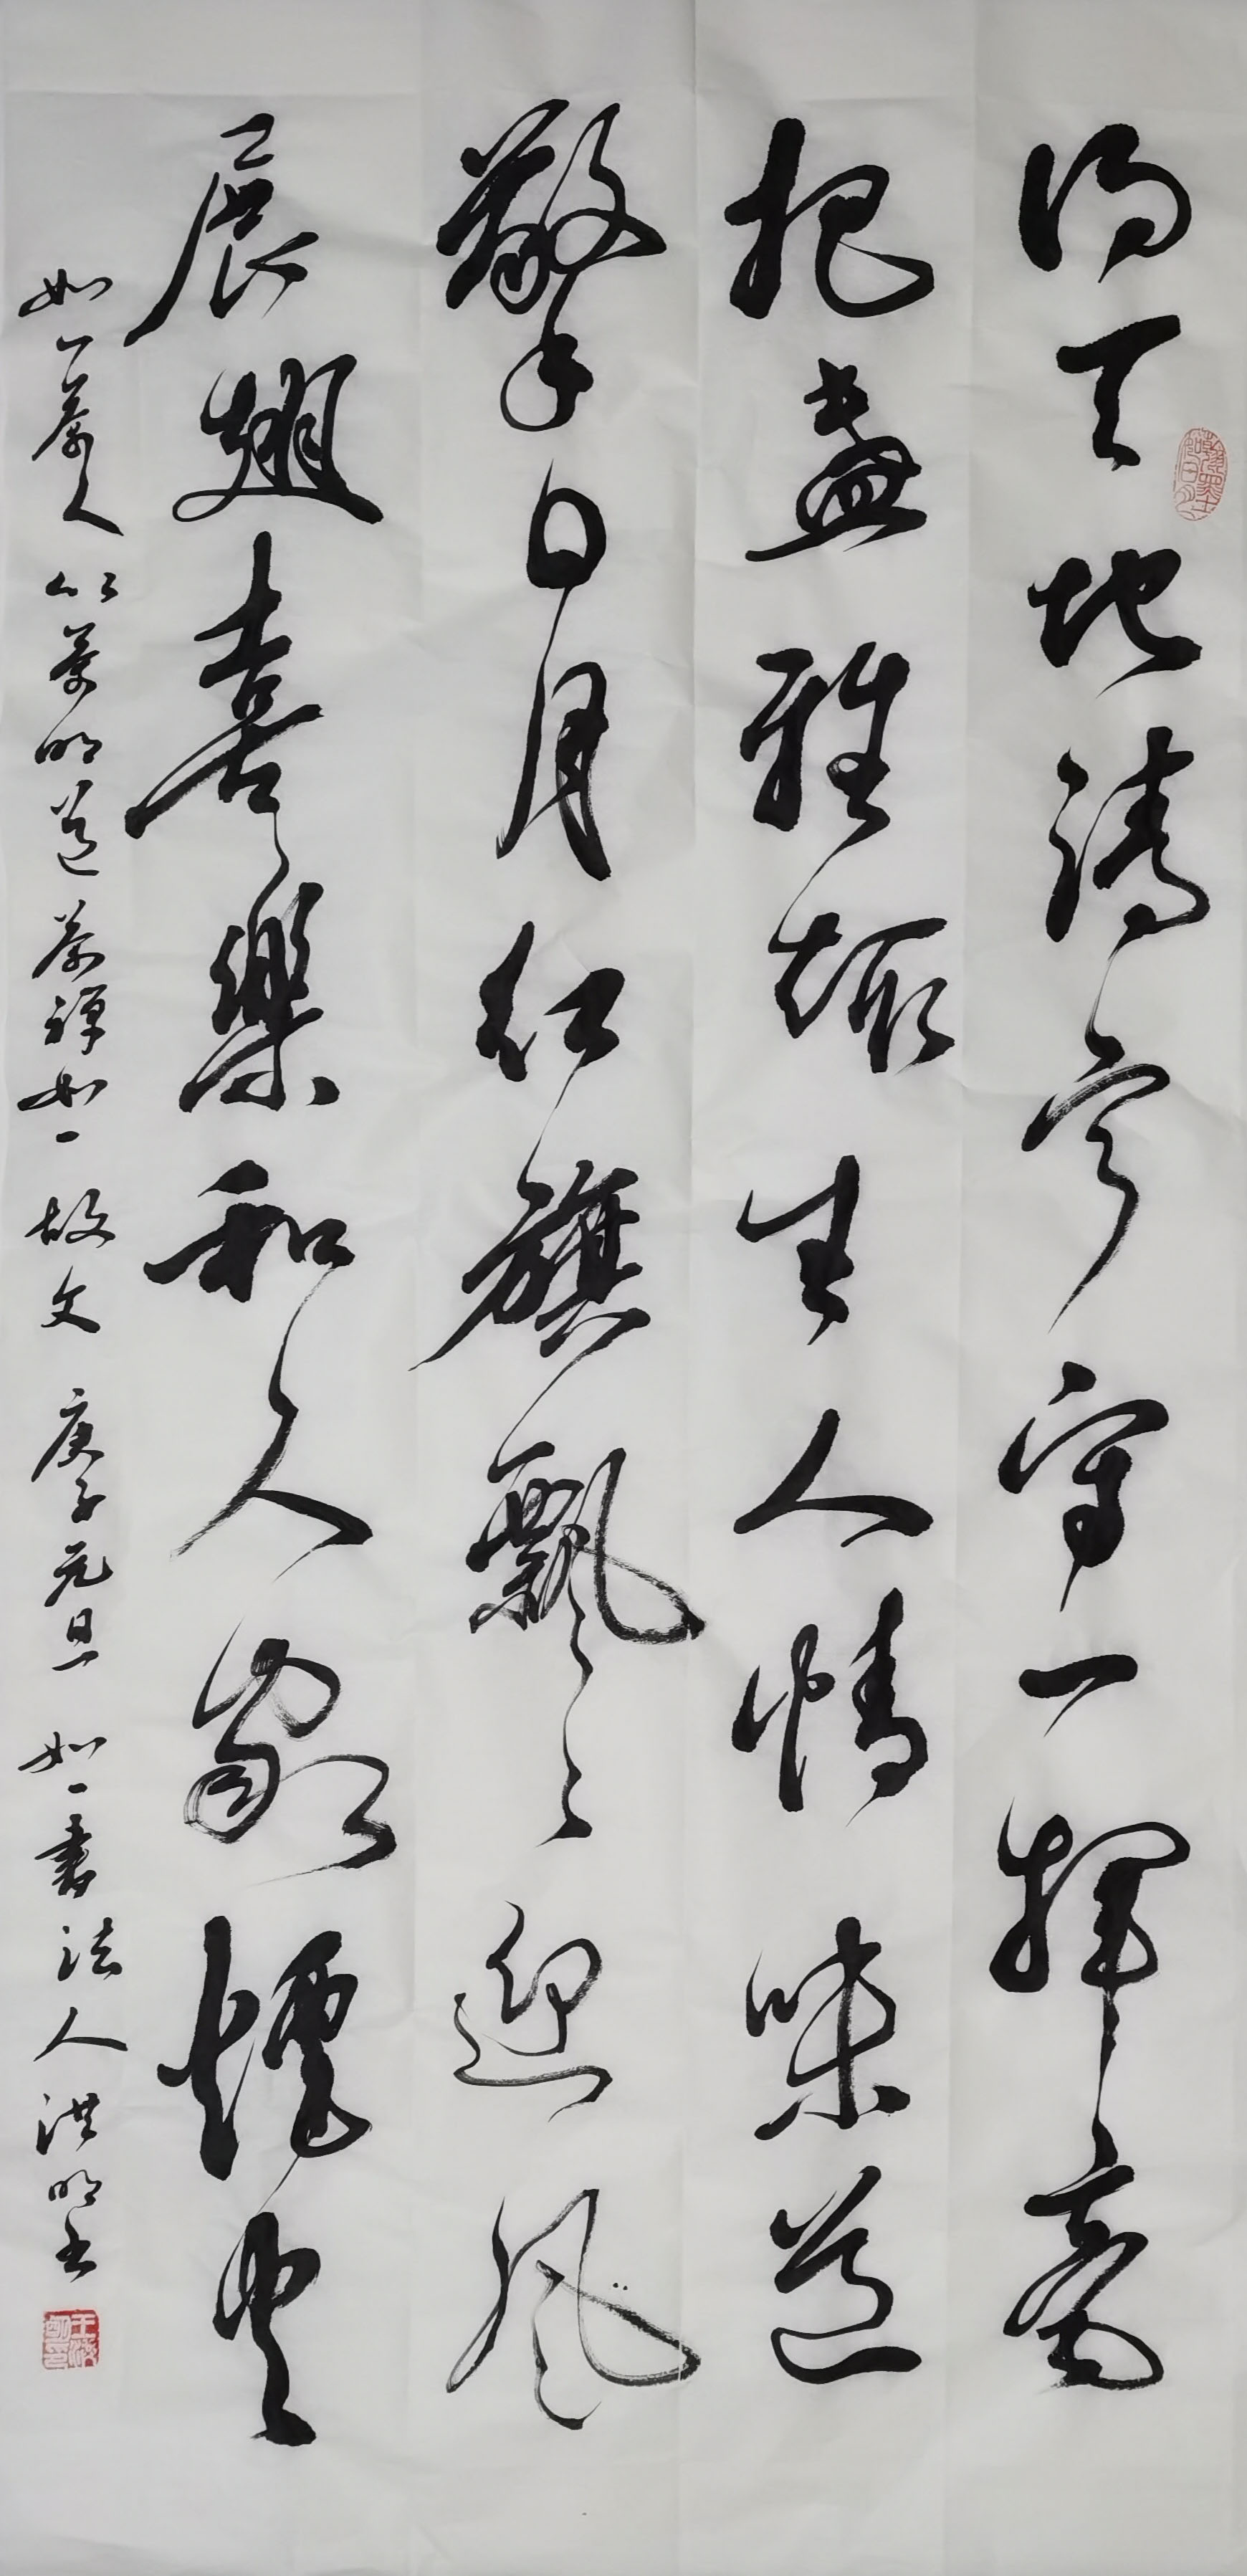 得天地清寧守一揮毫
把盞雅趣生人情味道
擎日月紅旗飄々迎風
展翅喜樂和人家煙火
如一茶人 以茶明道 茶禪如一 故文 庚子元旦 如一書法人洪明书